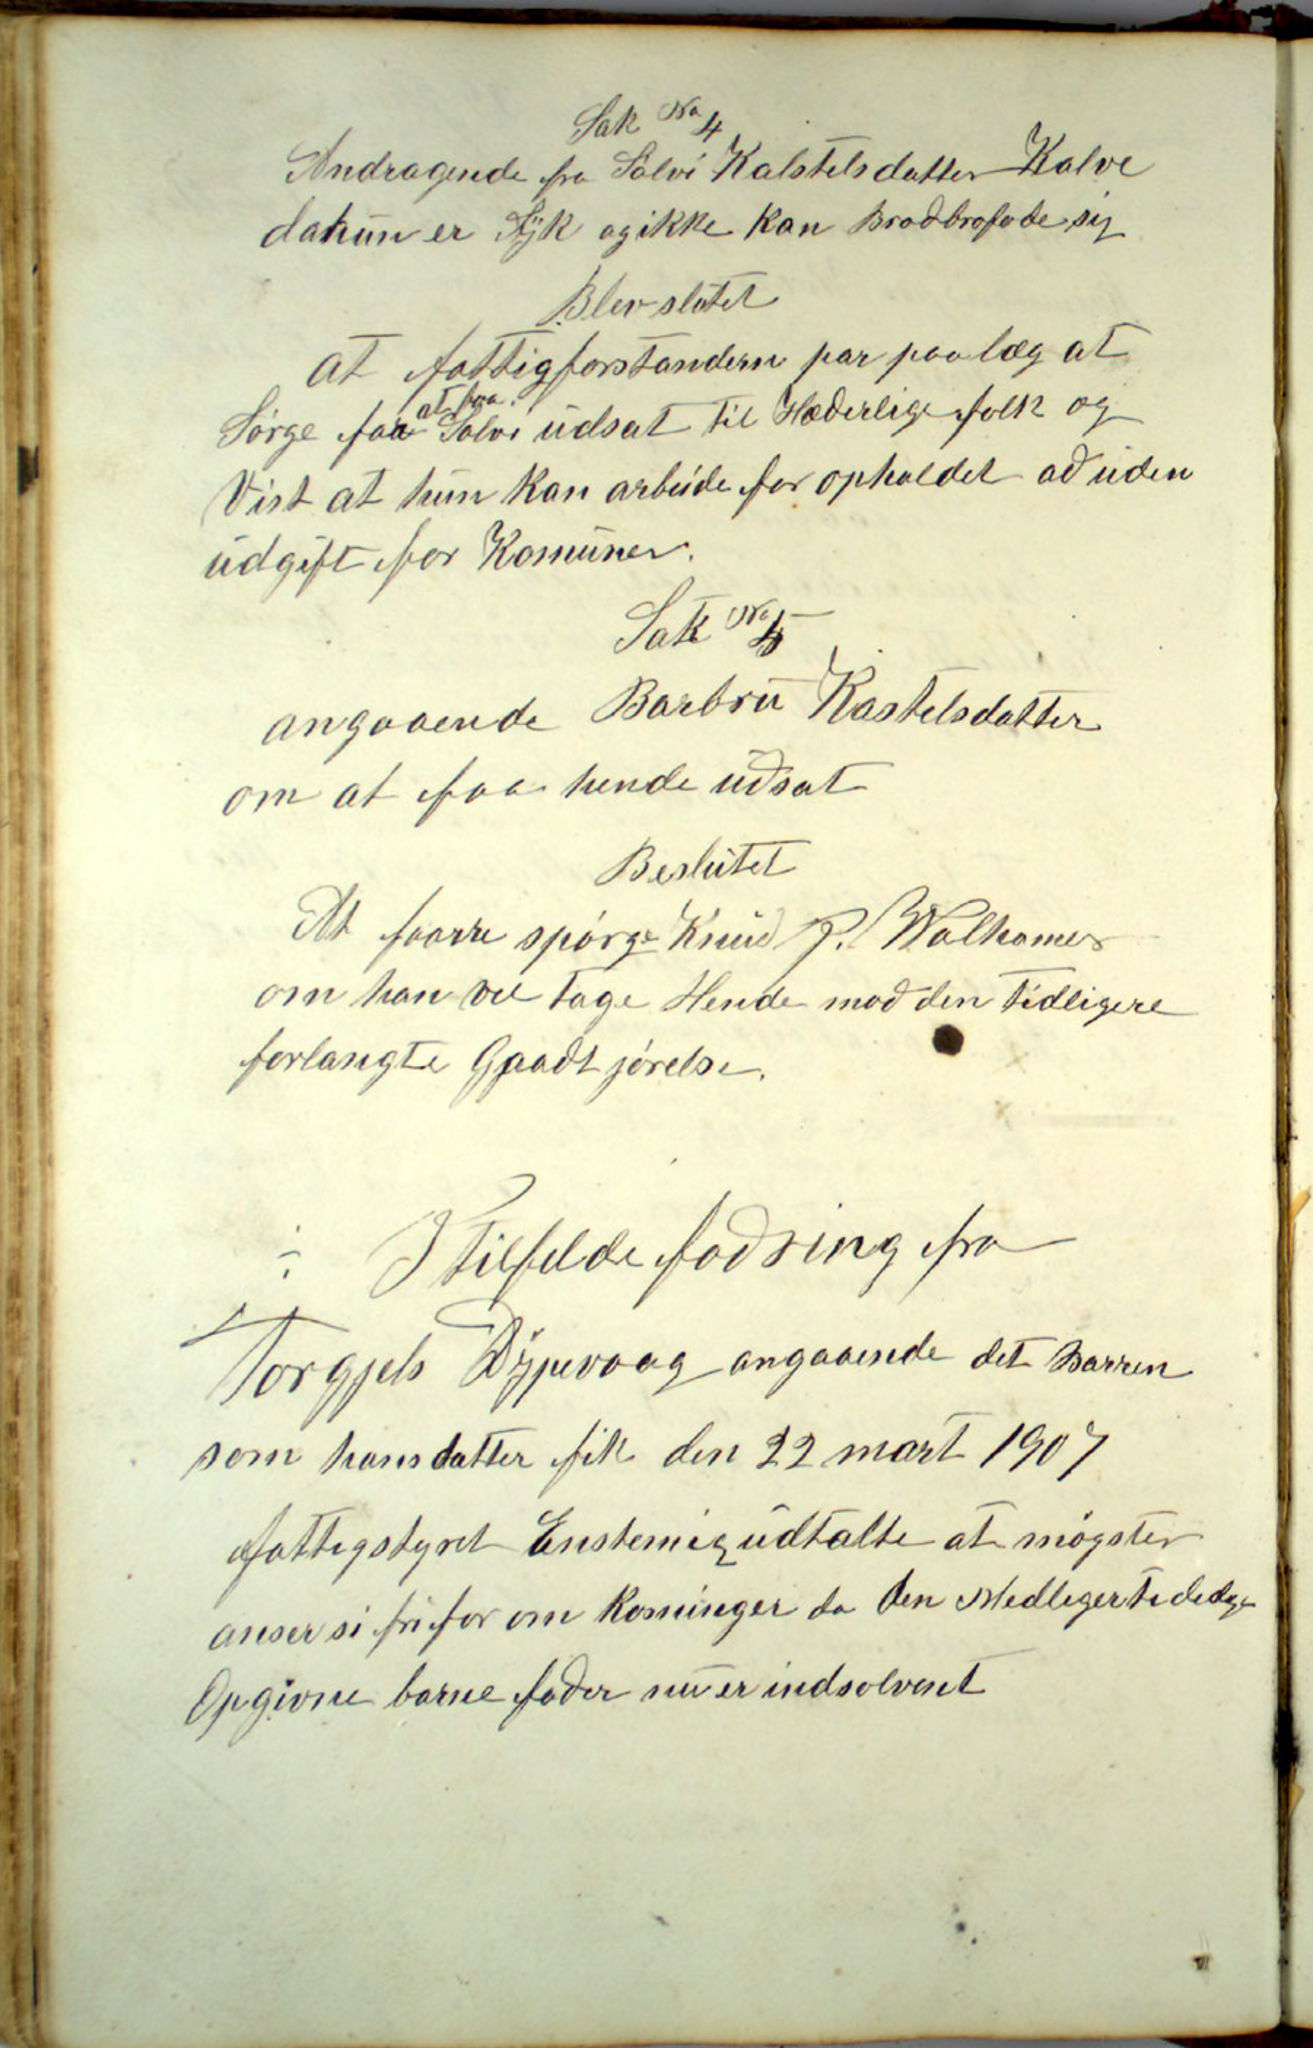 Sak No 4
Andragende fra Sølvi Kalstelsdatter Kalve
dahun er Syk og ikke kan Brødbrøføde sig
Blev slutet
at fattigforstandern par paalæg at
Sørge faa at faa Sølvi udsat til Hæderlige folk og
Vist at hun kan arbeide for opholdet ad uden
udgift for Komunen.
Sak No 5
angaaende Barbru Kastelsdatter
om at faa hende udsat
Beslutet
At faarre spørge Knud P. Walhamer
om han vil tage Hende mod den tidligere
forlangte Gjaadt jørelse.
÷ I tilfelde fodring fra
Torgjels Dypevaag angaaende det barren
som hans datter fik den 22 mart 1907
fattigstyret Enstemig udtalte at
anser si fri for om da den
Opgivne barne fader nu er indsolvent